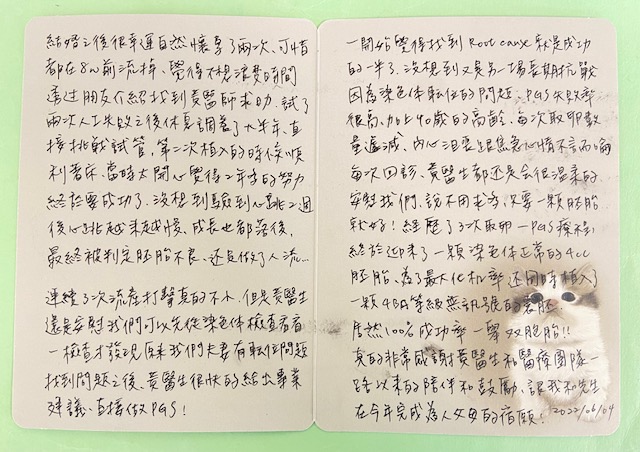 結婚之後很幸運自然懷孕了兩次、可惜
都在8w前流掉、覺得不想浪費時間
透過朋友介紹找到黃醫師求助、試了
兩次人工失敗之後休息調養了大半年、直
接挑戰試管、第二次植入的時候順
利著床、當時太開心覺得2年多的努力
終於要成功了、沒想到驗到心跳2週
後心跳越來越慢、成長也都落後、
最終被判定胚胎不良、還是做了人流...
連續了次流產打擊真的不小、但是黃醫生
還是安慰我們可以先從染色体檢查看看
一檢查才發現原來我們夫妻有転位問題
找到問題之後、黃醫生很快的給出專業
建議、直接做PGS!
一開始覺得找到Root cause就是成功
的一半了、沒想到又是另一場長期抗戰
因為染色体転位的問題、PGS失敗率
很高、加上40歲的高齡、每次取卵數
量遞減、內心沮喪跟焦急心情不言而喻
每次回診、黃醫生都還是會很溫柔的
安慰我們、說不用求多、只要一顆胚胎
就好!經歷了3次取卵-PGS療程、
終於迎來了一顆染色体正常的4cc
胚胎、為了最大化机率還同時植入了
一顆4BB等級無訊號的囊胚
居然100%成功率一舉双胞胎!!
真的非常感謝黃醫生和醫療團隊一
路以來的陪伴和鼓勵、讓我和先生
在今年完成為人父母的宿願! 2022/06/04